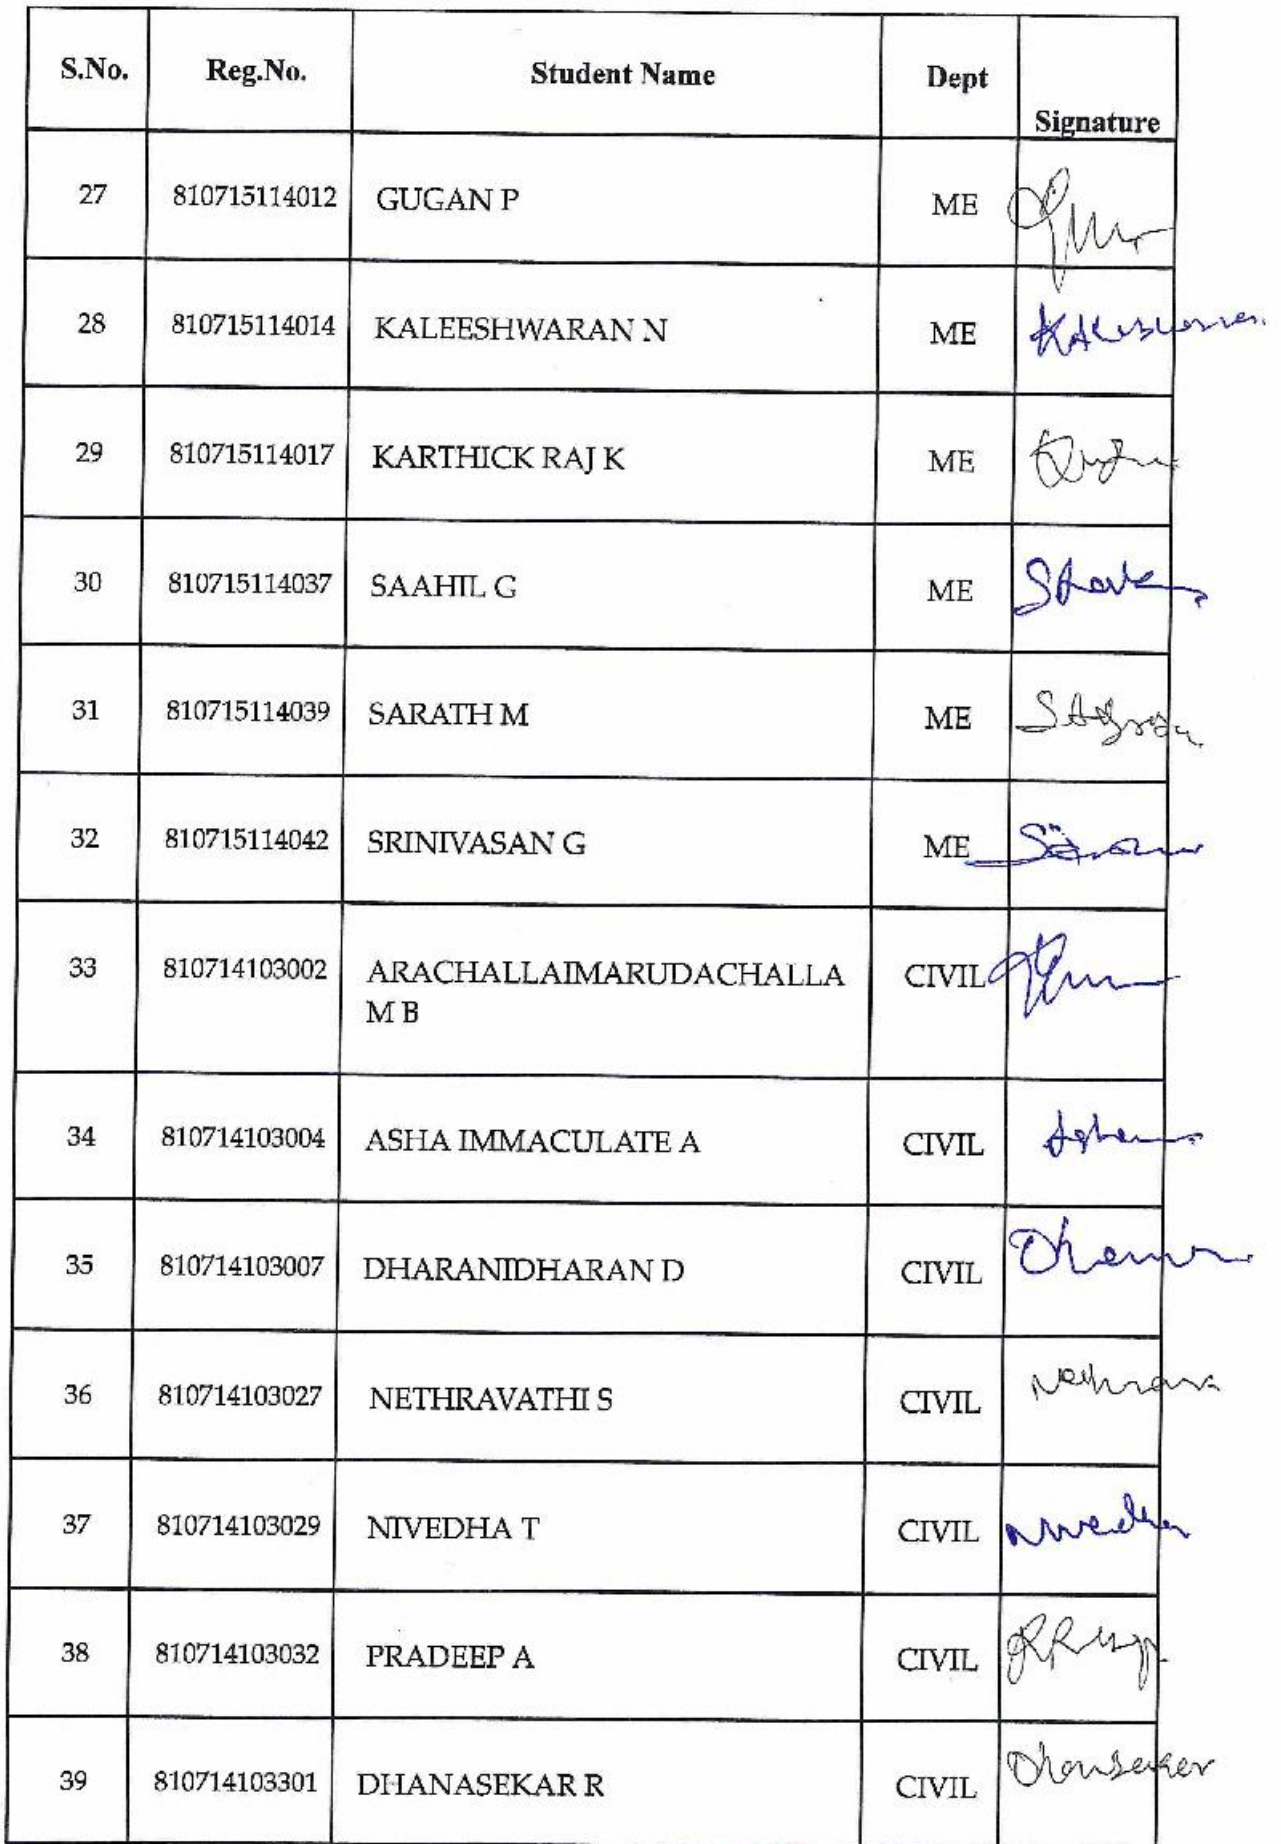 S.No. Reg.No. Student Name Dept Signature
27 810715114012 GUGAN P ME
28 810715114014 KALEESHWARAN N ME
29 810715114017 KARTHICK RAJ K ME
30 810715114037 SAAHIL G ME
31 810715114039 SARATH M ME
32 810715114042 SRINIVASAN G ME
33 810714103002 ARACHALLAIMARUDACHALLA CIVIL
M B
34 810714103004 ASHA IMMACULATE A CIVIL
35 810714103007 DHARANIDHARAN D CIVIL
36 810714103027 NETHRAVATHI S CIVIL
37 810714103029 NIVEDHA T CIVIL Nivedha
38 810714103032 PRADEEP A CIVIL
39 810714103301 DHANASEKAR R CIVIL Dhansekar